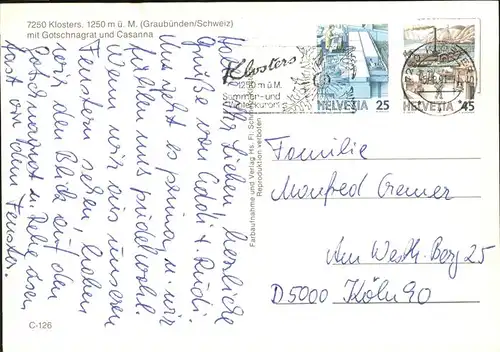 7250 Klosters. 1250 m ü. M. (Graubünden/Schweiz)
mit Gotschnagrat und Casanna
Klosters
1250 m ü. M.
Sommer- und
HELVETIA 25
HELVETIA 45
Hallo Ihr Lieben, herzliche
Grüße von Addi + Rudi.
Uns geht es prima u. wir
fühlen uns pudelwohl.
Wenn wir aus unseren
Fenstern sehen, haben
wir den Blick auf den
Gotschnagrat u.
fast vor dem Fenster.
Farbaufnahme und Verlag Hs. Fl.
Reproduktion verboten
Familie
Manfred Cremer
Am Westh. Berg 25
D5000 Köln 90
C-126